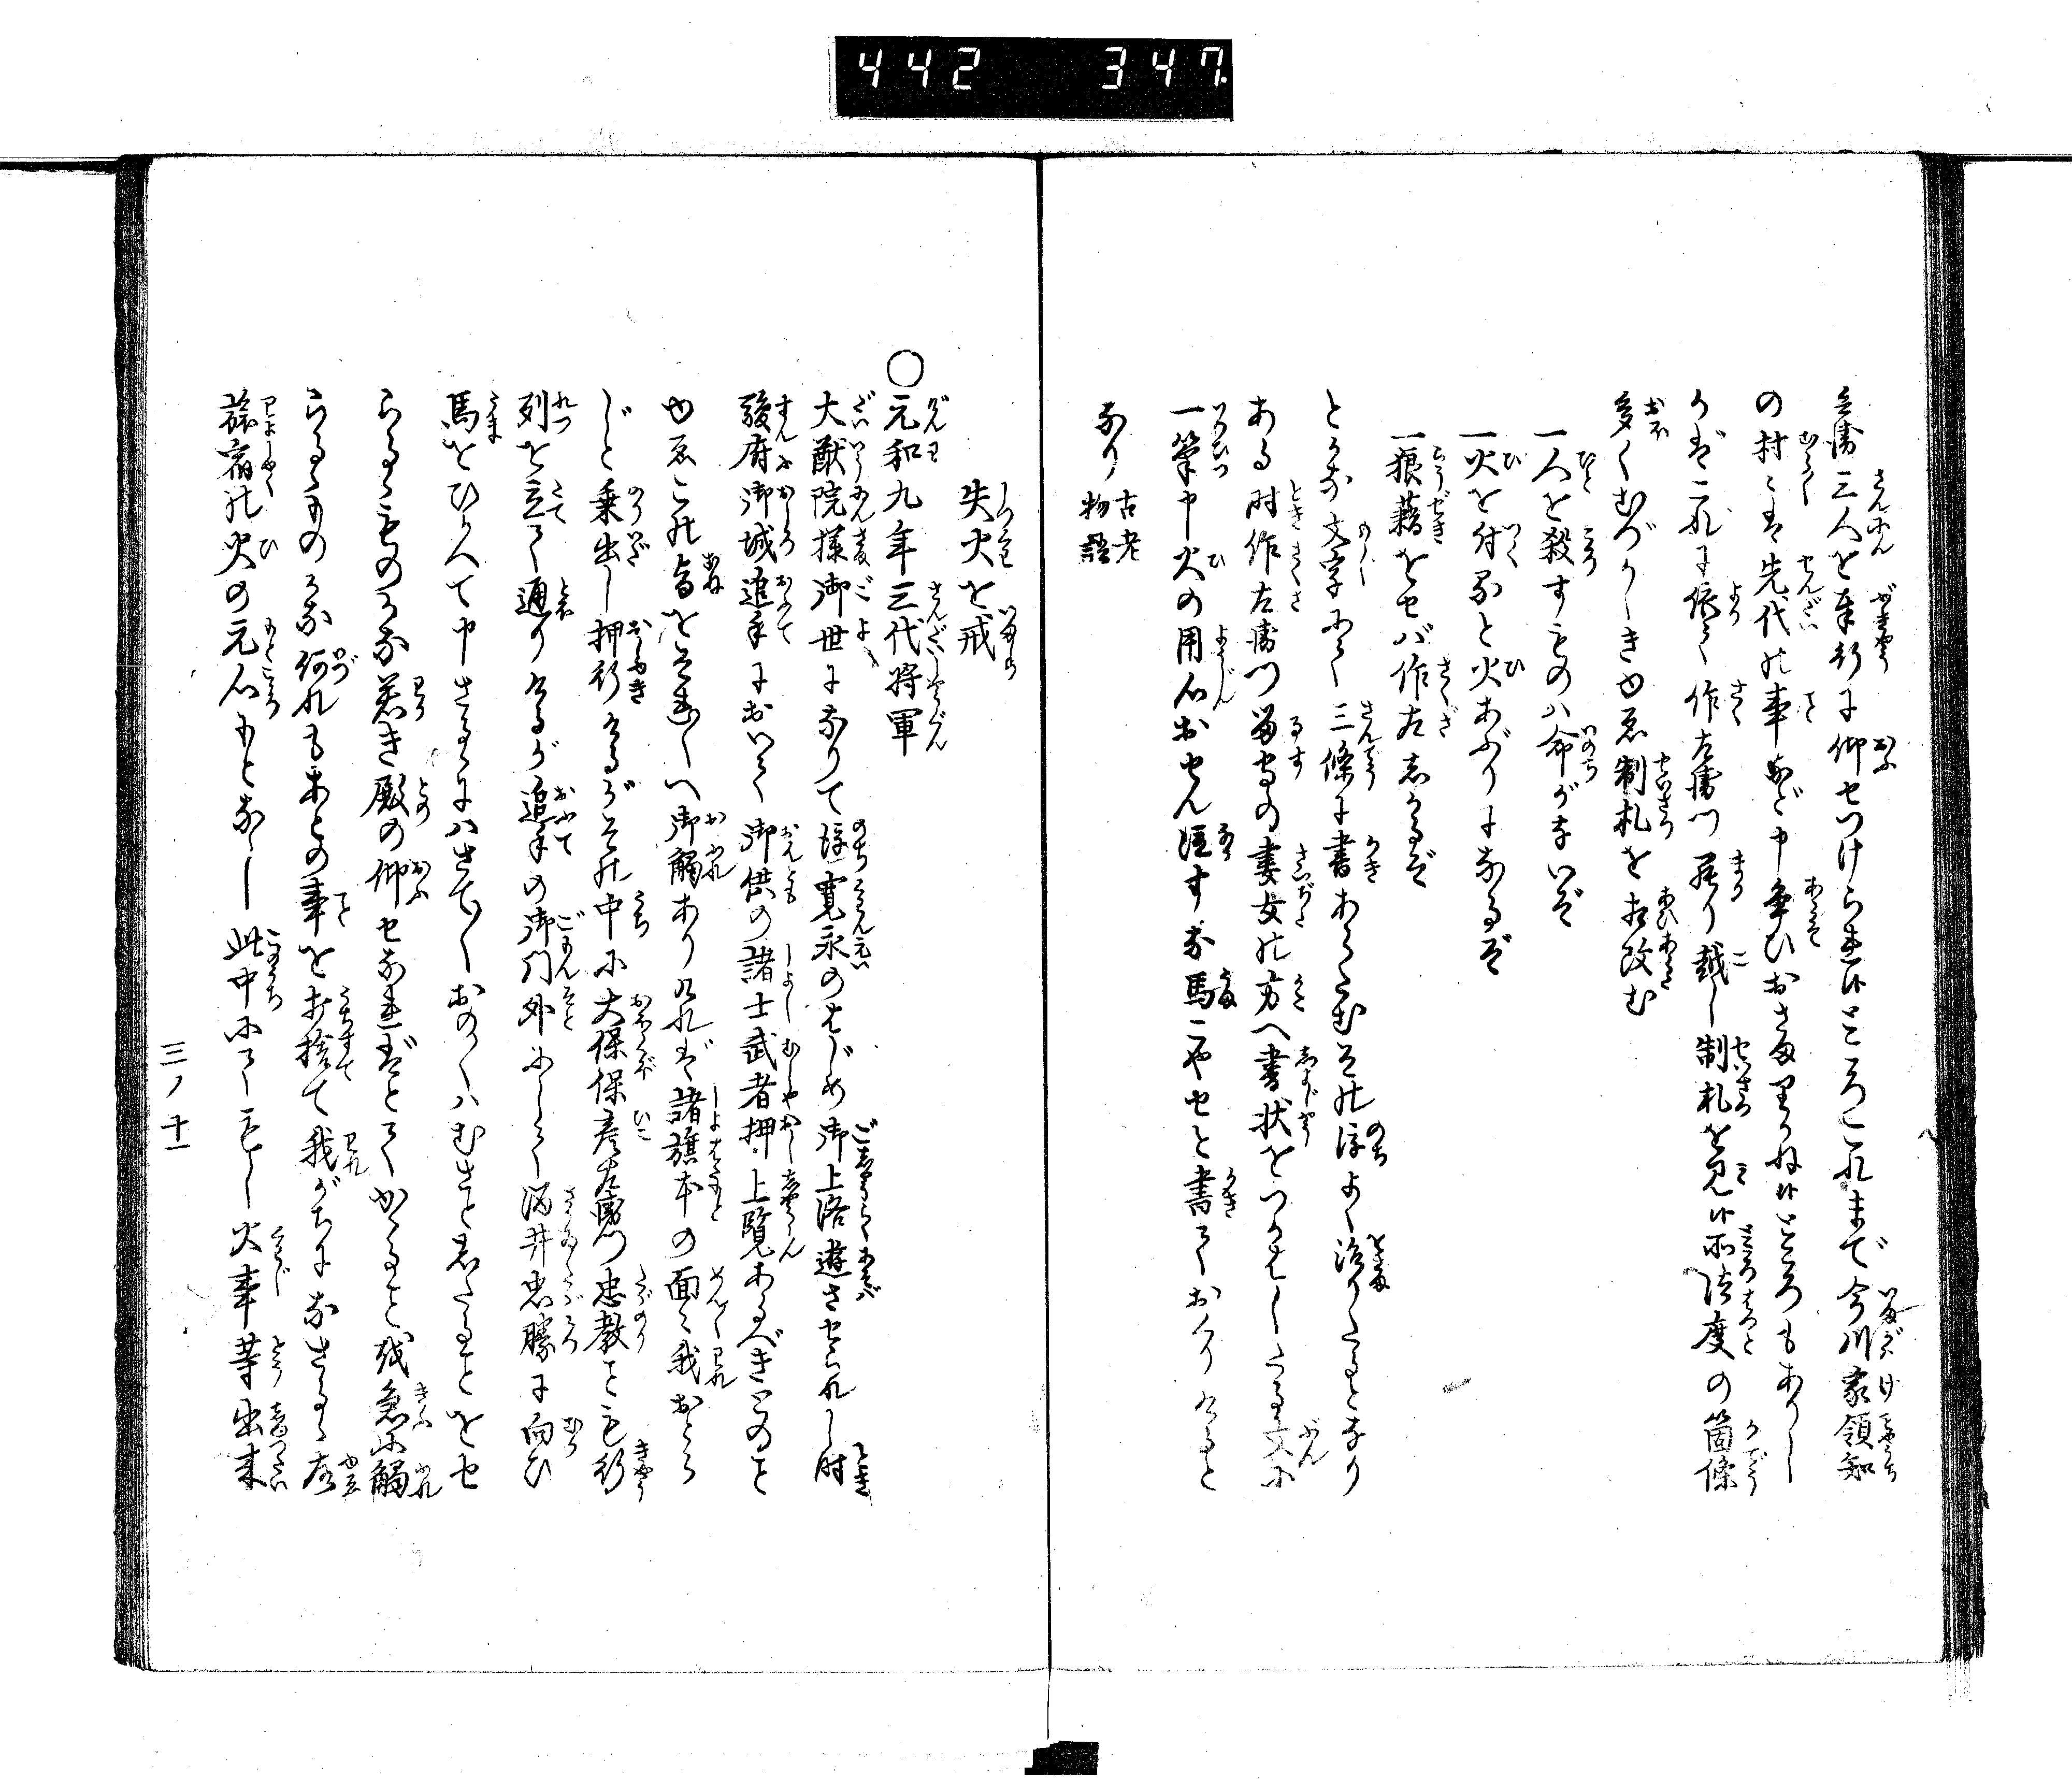 442 347.
兵衛三人を奉行に仰せつけられけところこれまで今川家領知
の村々は先代の事など申争ひおさまりかねけところもありし
かばこれに依て作左衛門罷り越し制札を見け所法度の箇條
多くむづかしきゆゑ制札を相改む
一人を殺すものハ命がないぞ
一火を付ると火あぶりになるぞ
一狼藉をせバ作左しかるぞ
とかな文字にて三條に書あらたむその後よく治りたるとなり
ある時作左衛門留守の妻女の方へ書状をつかはしたる文に
一筆申火の用心おせん泣すな馬こやせと書ておくりけると
なり 古老物語
失火を戒
○元和九年三代将軍
大猷院様御世になりて後寛永のはじめ御上洛遊させられし時
駿府御城追手において御供の諸士武者押上覧あるべきとのこと
ゆゑこの旨をそれ〳〵へ御觸ありければ諸旗本の面々我おとら
じと乗出し押行けるがその中に大保保彦左衛門忠教こも行
列を立て通りけるが追手の御門外にして酒井忠勝に向ひ
馬をひかへて申さるるにハさて〳〵おの〳〵ハむさと忝たることをせ
らるるものかな若き殿の仰せなればとてかかること残急に觸
らるるものかな何れもあとの事を打捨て我がちになさるる故
旅宿の火の元心もとなし此中にても火事等出来
三ノ十一